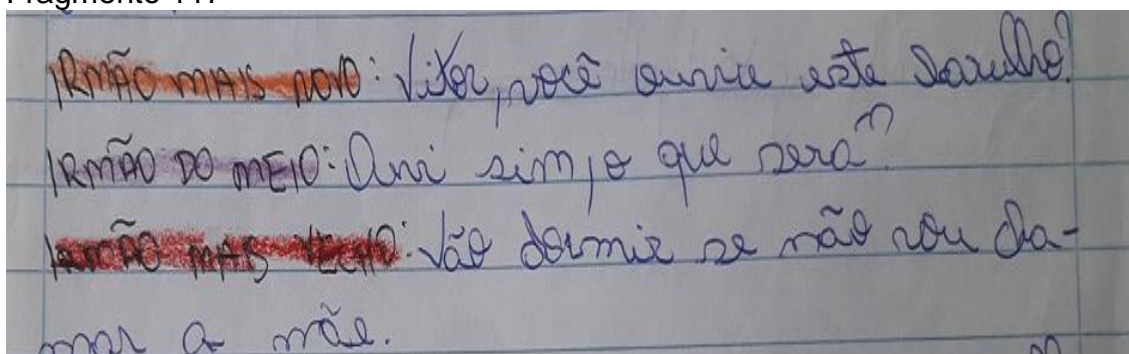 IRMÃO MAIS NOVO: Vitor, você ouviu este barulho?
IRMÃO DO MEIO: Ouvi sim, o que será?
IRMÃO MAIS VEHO: Vão dormir se não vou cha-
mar a mãe.